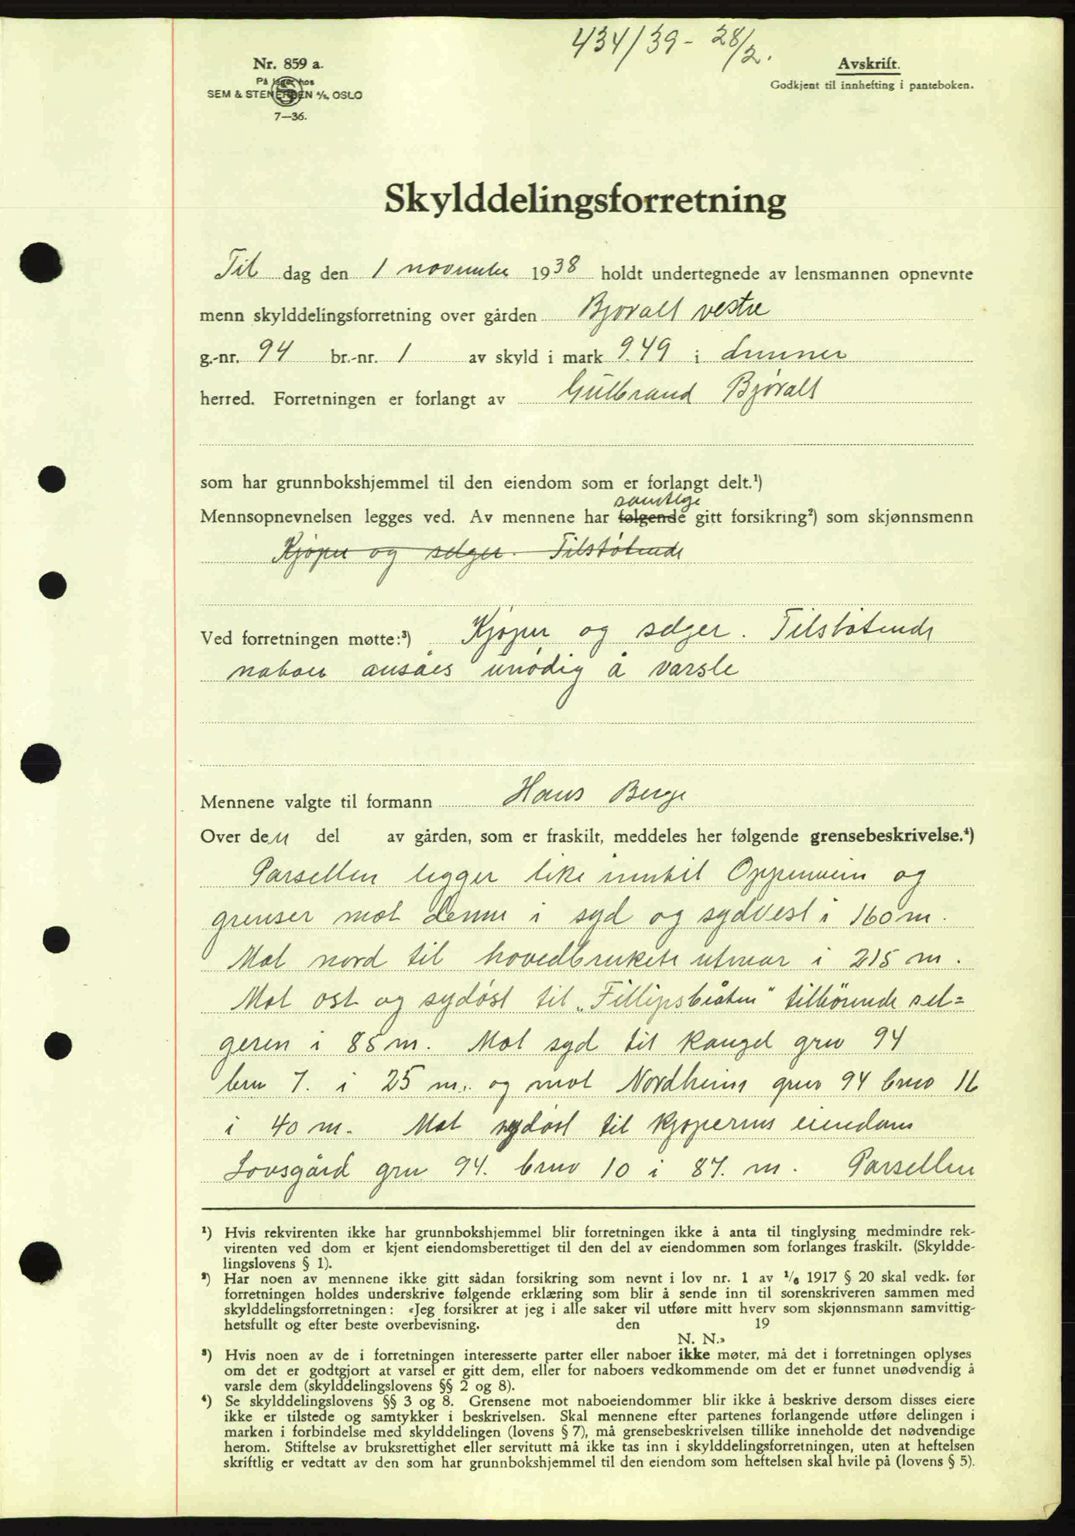 434/39 - 28/2.
Nr. 859 a.
På lager hos
SEM & STENERSEN A/S, OSLO
7—36.
Avskrift.
Godkjent til innhefting i panteboken.
Skylddelingsforretning
Til dag den 1 november 1938 holdt undertegnede av lensmannen opnevnte
menn skylddelingsforretning over gården Bjøralt vestre
g.-nr. 94 br.-nr. 1 av skyld i mark 9.49 i Lunner
herred. Forretningen er forlangt av Gulbrand Bjøralt
som har grunnbokshjemmel til den eiendom som er forlangt delt.¹)
samtlige
Mennsopnevnelsen legges ved. Av mennene har følgende gitt forsikring²) som skjønnsmenn
Kjøper og selger. Tilstøtende
Ved forretningen møtte:³) Kjøper og selger. Tilstøtende
naboer ansåes unødig å varsle
Mennene valgte til formann Hans Berge
Over den del av gården, som er fraskilt, meddeles her følgende grensebeskrivelse.⁴)
Parsellen legger like inntil Oppenveien og
grenser mot denne i syd og sydvest i 160 m.
Mot nord til hovedbrukets utmar i 215 m.
Mot ost og sydøst til „Fillipsbråten" tilhörende sel=
geren i 85 m. Mot syd til Kangel grn 94
brn 7. i 25 m. og mot Nordheim grno 94 brno 16
i 40 m. Mot sydøst til kjøperens eiendom
Lovsgård grn 94. brno 10 i 87. m. Parsellen
¹) Hvis rekvirenten ikke har grunnbokshjemmel blir forretningen ikke å anta til tinglysing medmindre rek-
virenten ved dom er kjent eiendomsberettiget til den del av eiendommen som forlanges fraskilt. (Skyldde-
lingslovens § 1).
²) Har noen av mennene ikke gitt sådan forsikring som nevnt i lov nr. 1 av 1/6 1917 § 20 skal vedk. før
forretningen holdes underskrive følgende erklæring som blir å sende inn til sorenskriveren sammen med
skylddelingsforretningen: «Jeg forsikrer at jeg i alle saker vil utføre mitt hverv som skjønnsmann samvittig-
hetsfullt og efter beste overbevisning. den 19
N. N.»
³) Hvis noen av de i forretningen interesserte parter eller naboer ikke møter, må det i forretningen oplyses
om det er godtgjort at varsel er gitt dem, eller for naboers vedkommende om det er funnet unødvendig å
varsle dem (skylddelingslovens §§ 2 og 8).
⁴) Se skylddelingslovens §§ 3 og 8. Grensene mot naboeiendommer blir ikke å beskrive dersom disses eiere
ikke er tilstede og samtykker i beskrivelsen. Skal mennene efter partenes forlangende utføre delingen i
marken i forbindelse med skylddelingen (lovens § 7), må grensebeskrivelsen tillike inneholde det nødvendige
herom. Stiftelse av bruksrettighet eller servitutt må ikke tas inn i skylddelingsforretningen, uten at heftelsen
skriftlig er vedtatt av den som har grunnbokshjemmel til den eiendom som heftelsen skal hvile på (lovens § 5).